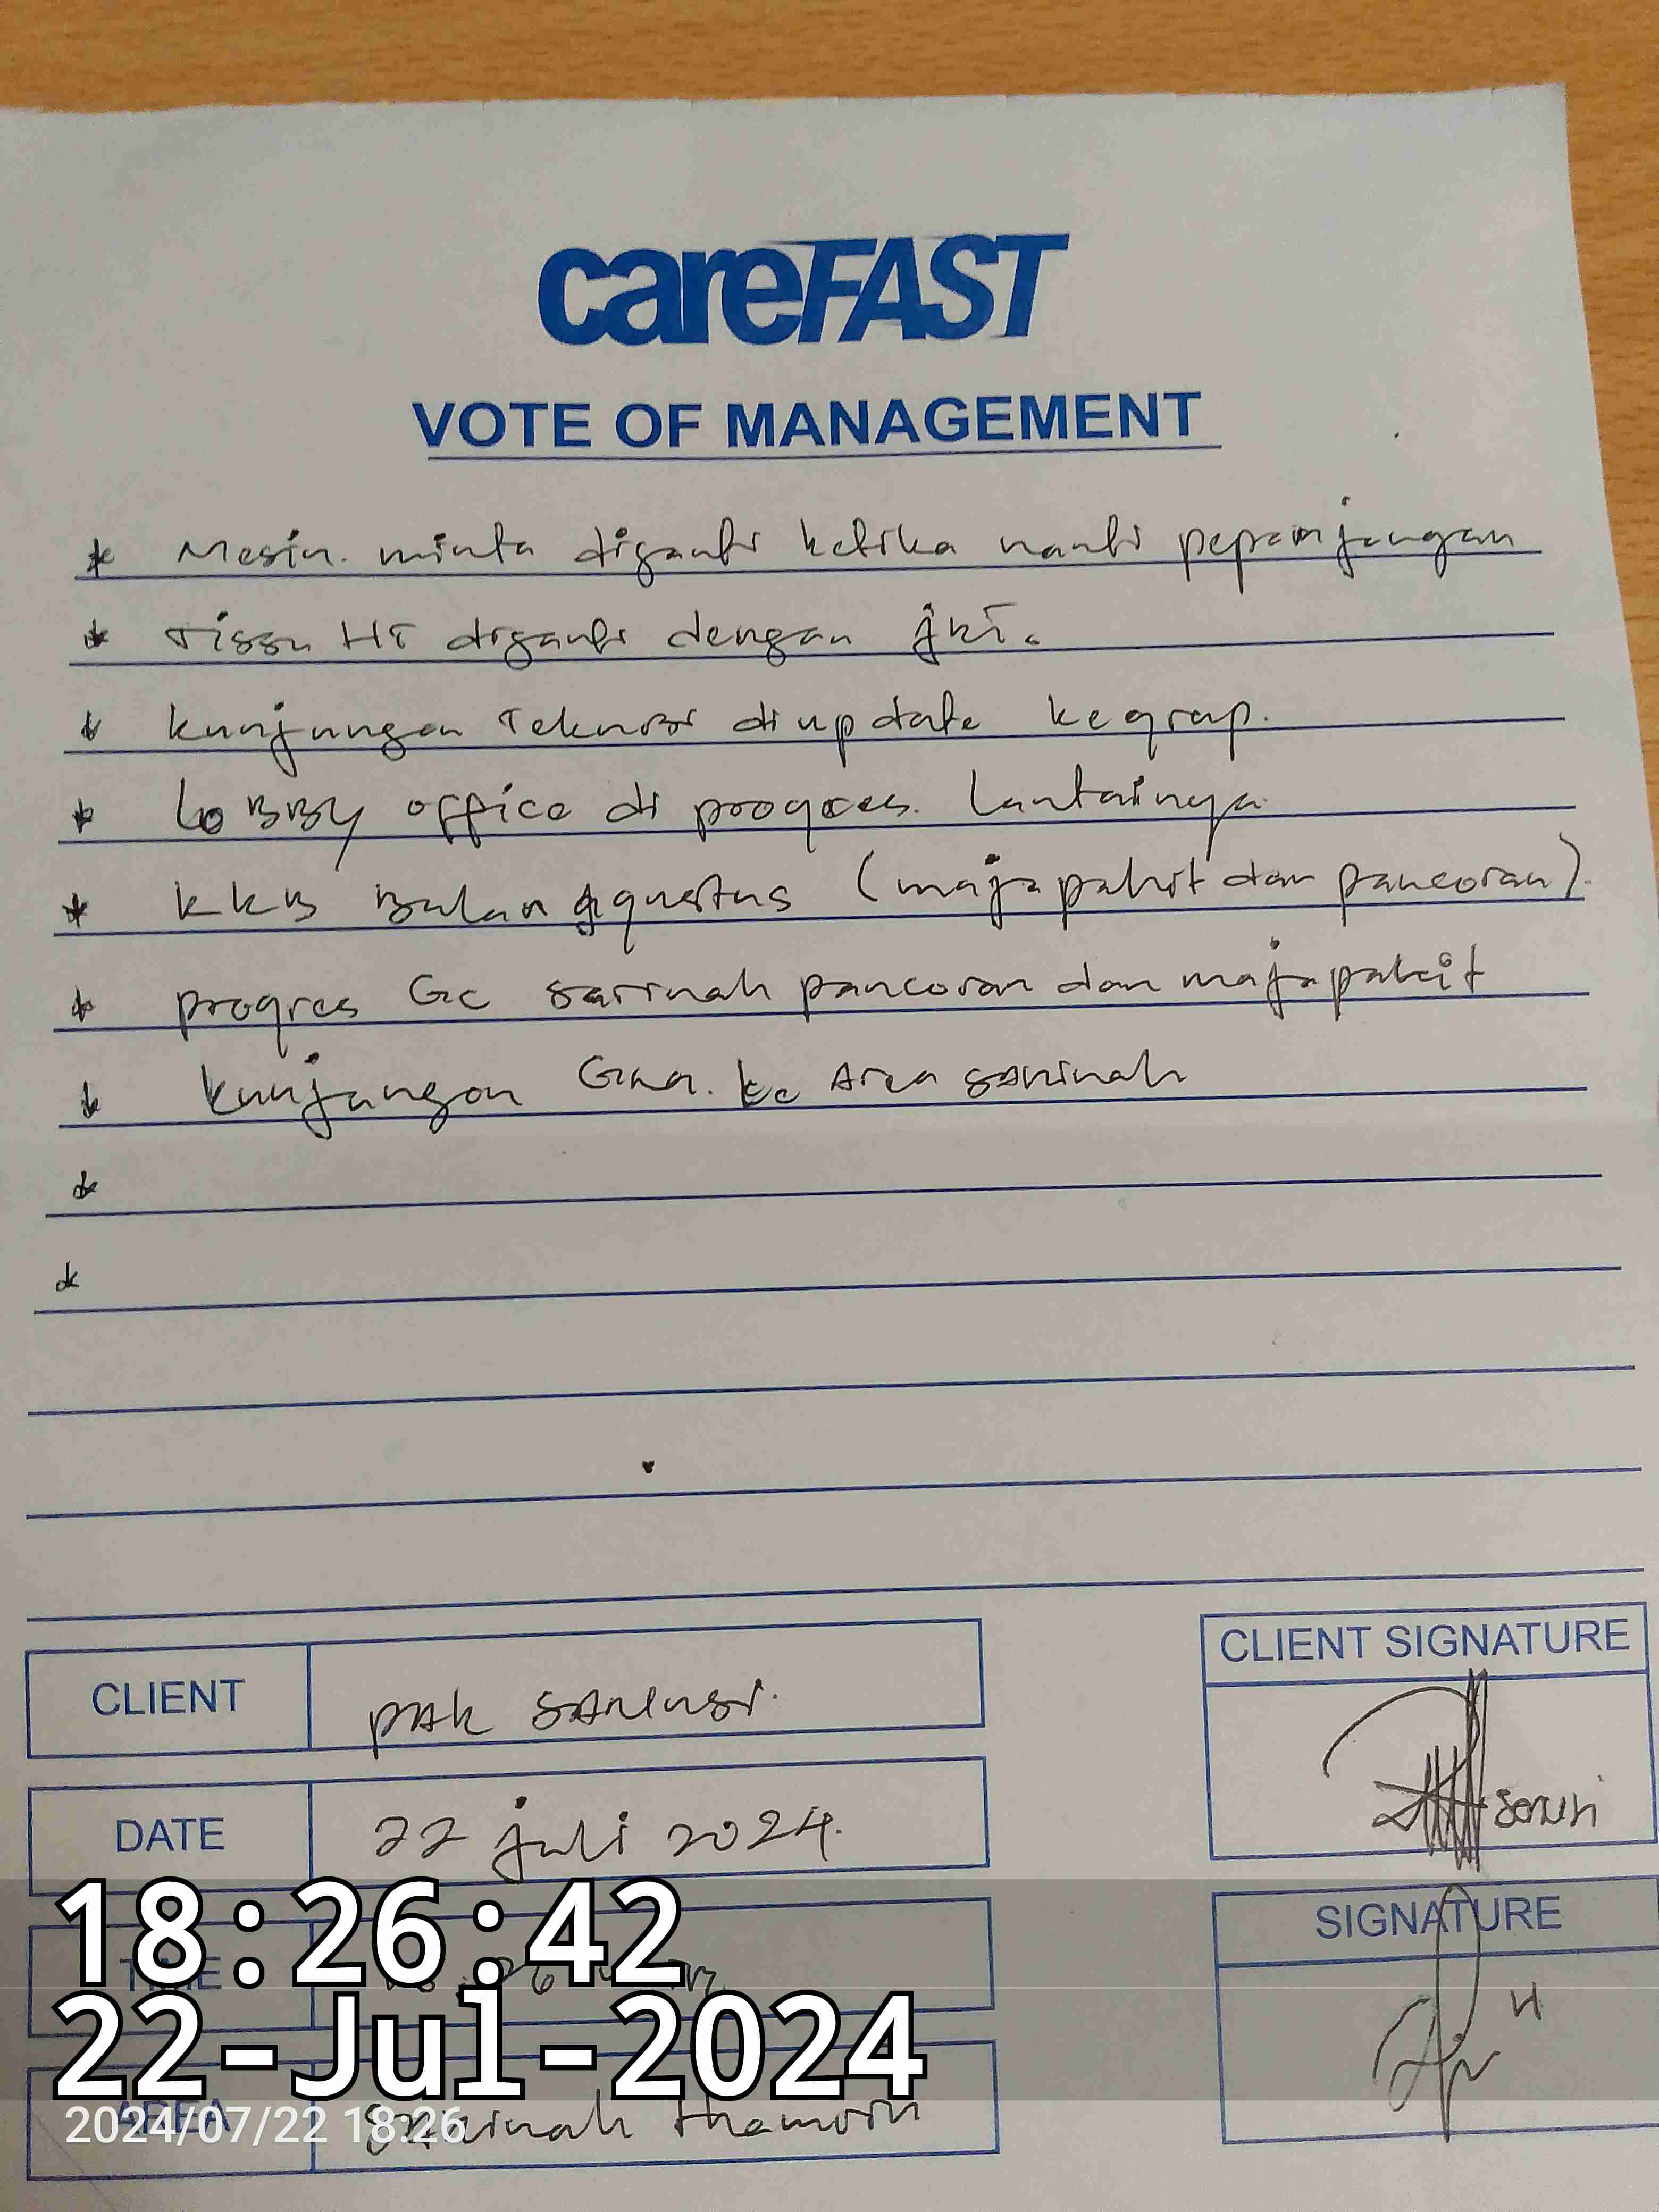 careFAST
VOTE OF MANAGEMENT
* Mesin. minta diganti ketika nanti pepamjangan
* Tissu HT diganti dengan jkt.
* kunjungan Teknisi di update kegrap.
* LoBBy office di progres. lantainya
* KKB Bulan Agustus (majapahit dan pancoran).
* progres GC sarinah pancoran dan majapahit
* kunjangan ke Area SArinah
*
*
CLIENT
pAk SAnusi.
CLIENT SIGNATURE
sanusi
DATE
22 juli 2024.
18:26:42
TIME
22-Jul-2024
AREA
SArinah thamrin
2024/07/22 18:26
SIGNATURE